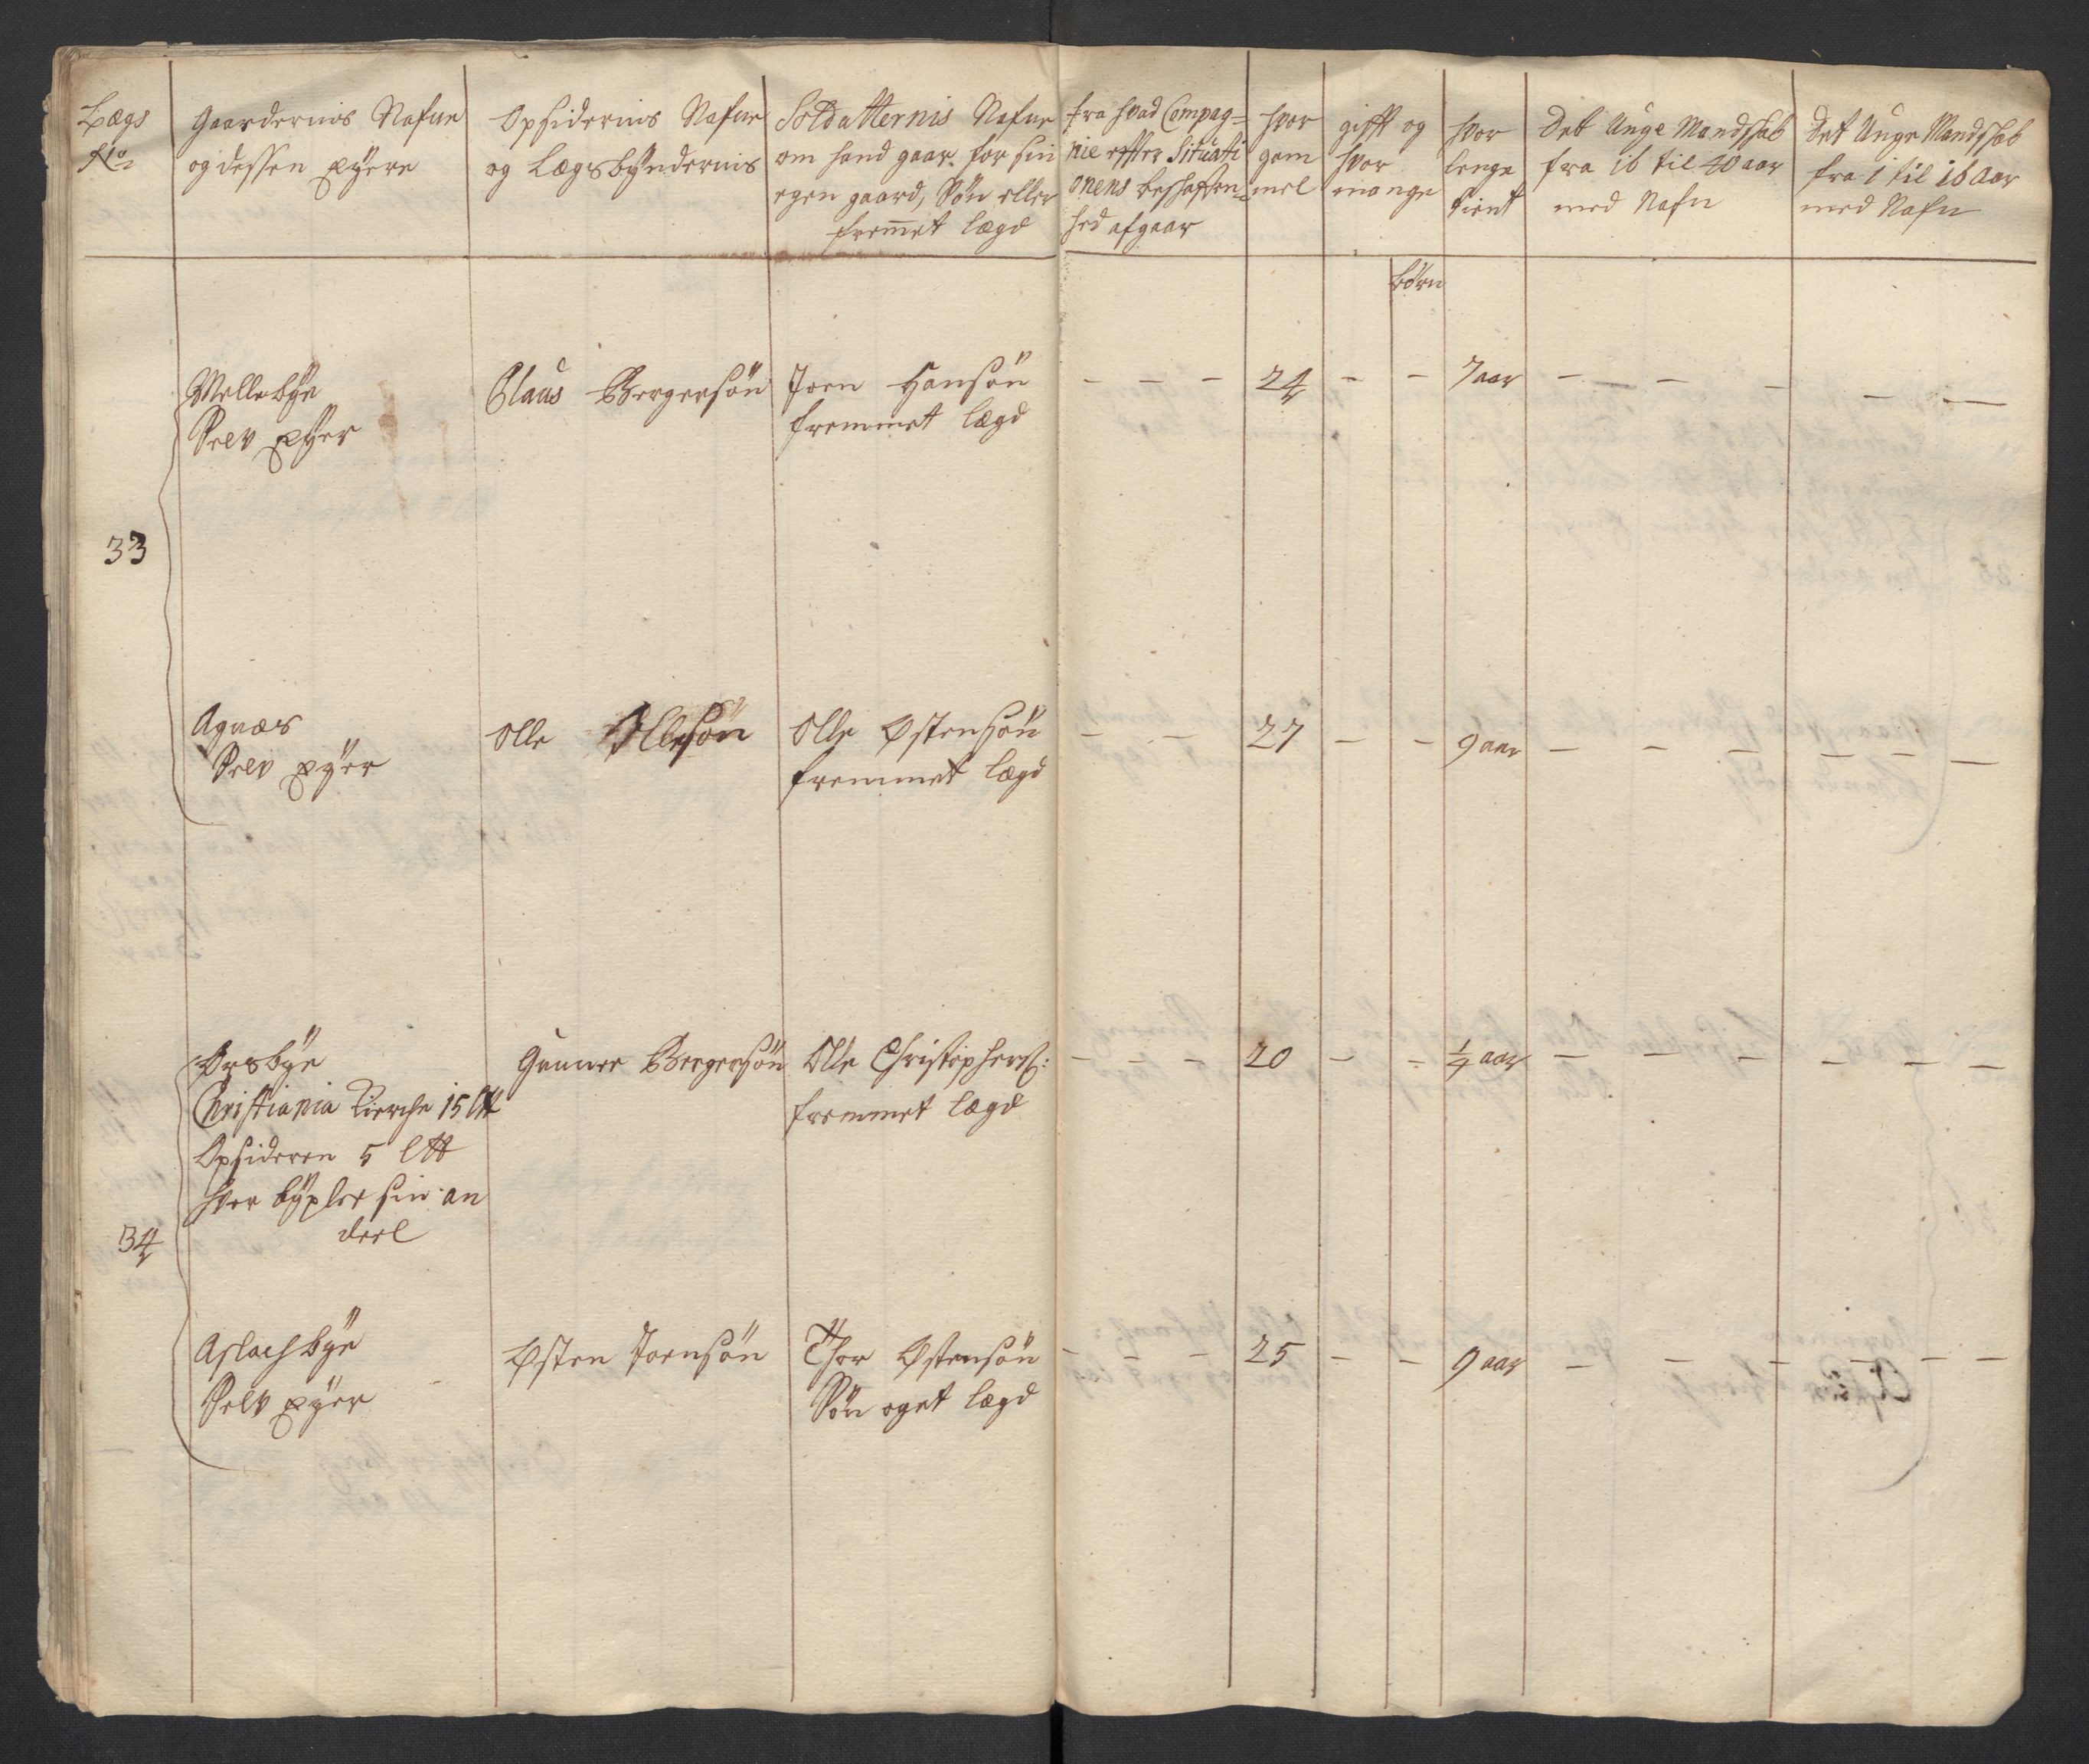 Lægs
No
Gaardernis Nafne
og dessen eyere
Opsidernis Nafne
og Lægsbøndernis
Soldatternis Nafne
om hand gaar for sin
egen gaard, Søn eller
fremet lægd
fra hvad Compag=
nie effter Situati
onens beskaffen=
hed afgaar
hvor
gam
mel
gifft og
hvor
mange
hvor
lenge
tient
Det Unge Mandskab
fra 16 til 40 aar
med Nafn
Det Unge Mandskab
fra 1 til 16 aar
med Nafn
børn
33
Mellebye
Selv eyer
Claus Bergersøn
Joen Hansøn
fremmet lægd
– – – 24 – – 7 aar – – – – –
Agnæs
Selv eyer
Olle Ollesøn
Olle Østensøn
fremmet lægd
– – 27 – – 9 aar – – – – – –
34
Ørsbye
Christiania Kierche 15 
Opsideren 5 
hver bÿxler sin an
deel
Gunner Bergersøn
Olle Christophers:
fremmet lægd
– – – 20 – – ¼ aar – – – – – –
Aslachbye
Selv eyer
Østen Joensøn
Thor Østensøn
Søn eget lægd
– – – 25 – – 9 aar – – – – – –